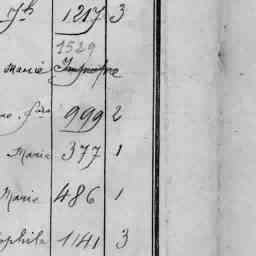 Jh 1217 3
1529
Marie
999 2
Marie 377 1
Marie 486 1
ophile 1141 3